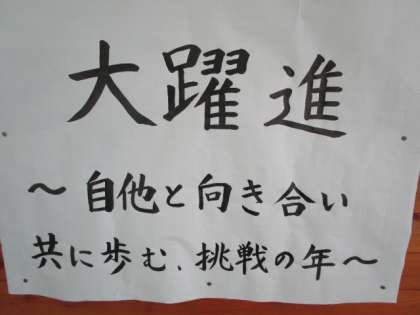 大躍進
～自他と向き合い
共に歩む、挑戦の年～